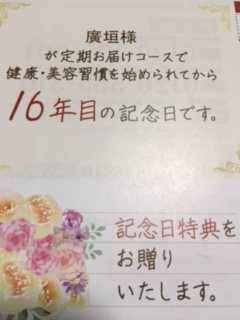 廣垣様
が定期お届けコースで
健康・美容習慣を始められてから
16年目の記念日です。
記念日特典を
お贈り
いたします。